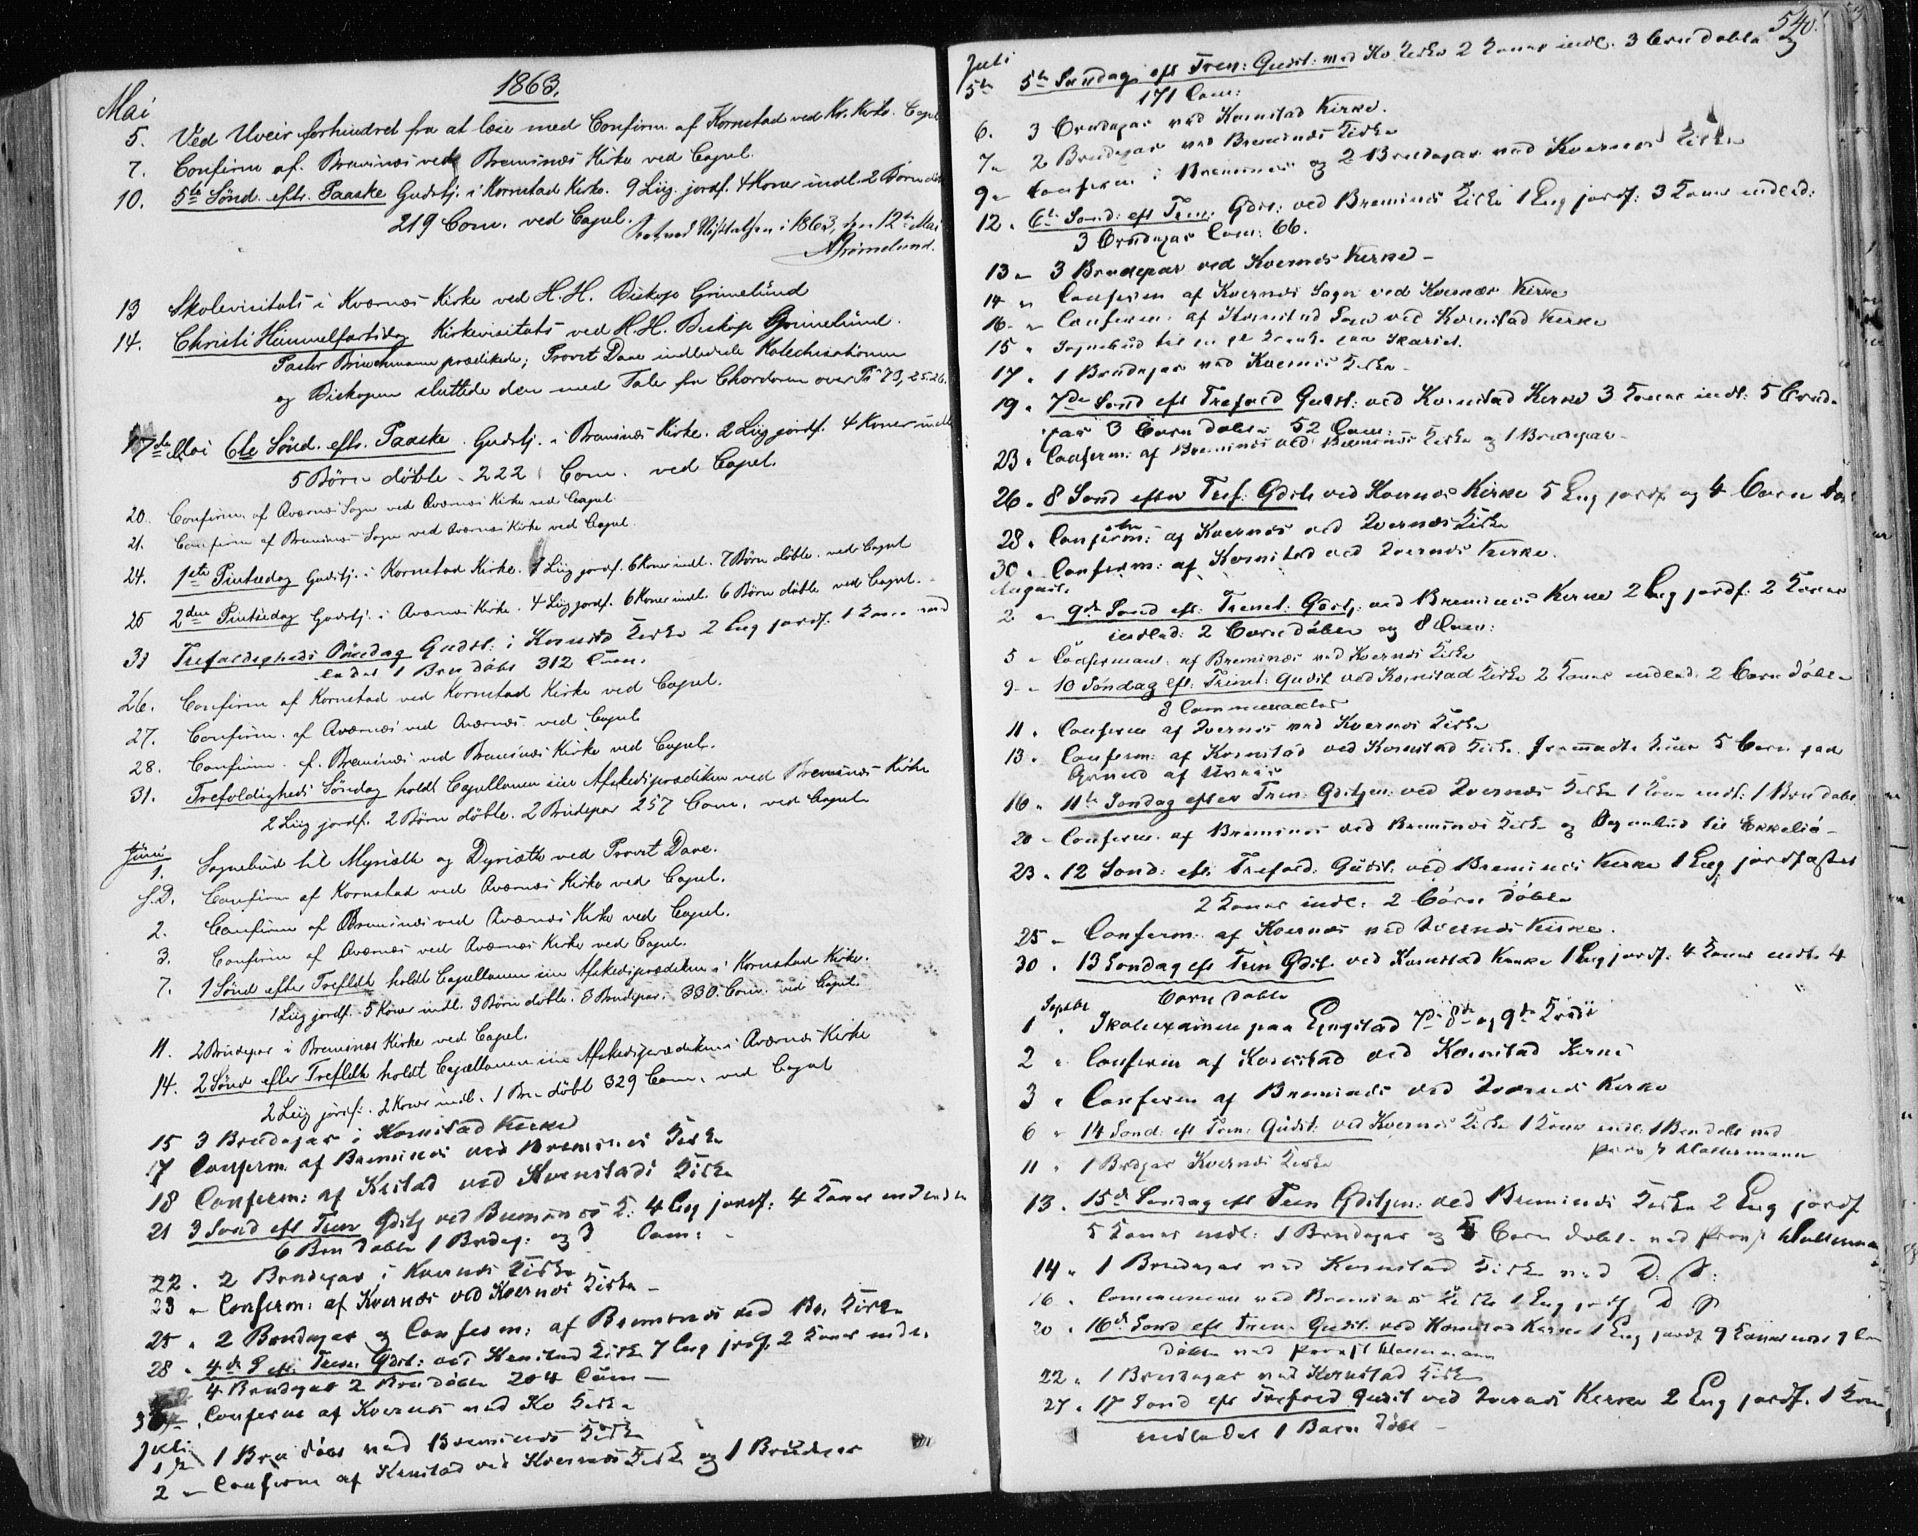 1863.
Mai
5. Ved Uveir forhindret fra at læse med Confirm. af Kornstad ved Kv. Kirke. Capel
7. Confirm af. Bremsnæs ved Bremsnæs Kirke ved Capel.
10. 5te Sønd. eftr. Paaske Gudstj. i Kornstad Kirke. 9 Liig jordf. 4 Koner indl. 2 Børn døb
219 Com. ved Capel.
i 1863, den 12te Mai
Grimelund.
13 Skolevisitats i Kværnæs Kirke ved H. H. Biskop Grimelund
14. Christi Himmelfartsdag Kirkevisitats ved H. H. Biskop Grimelund.
Pastor Brinchmann prædikede; Provst Dave indledede Katechisationen
og Biskopen sluttede den med Tale fra Chordøren over Ps 73, 25. 26.
17de Mai 6te Sønd. eftr. Paaske. Gudstj. i Bremsnæs Kirke. 2 Liig jordf. 4 Koner indl
5 Børn døbte. 222 Com. ved Capel.
20. Confirm. af Qværnæs Sogn ved Qværnæs Kirke ved Capel.
21. Confirm af Bremsnæs Sogn ved Qværnæs Kirke ved Capel.
24. 1ste Pintsedag Gudstj. i Kornstad Kirke. 1 Liig jordf. 6 Koner indl. 7 Børn døbte. ved Capel
25 2den Pintsedag Gudstj. i Qværnæs Kirke. 4 Liig jordf. 6 Koner indl. 6 Børn døbte ved Capel.
31 Trefoldigheds Søndag Gudst: i Kornstd Kirke 2 Liig jordf. 1 Kone ind
ledet 1 Brn døbt 312 Com.
26. Confirm af Kornstad ved Kornstad Kirke ved Capel.
27. Confirm. af Qværnæs ved Qværnæs ved Capel.
28. Confirm. f. Bremsnæs ved Bremsnæs Kirke ved Capel.
31. Trefoldigheds Søndag holdt Capellanen sin Afskedsprædiken ved Bremsnæs Kirke
2 Liig jordf. 2 Børn døbte. 2 Brudepar 257 Com. ved Capel
Juni
1. Sognebud til Myrsæth og Dyrsæth ved Provst Dave.
S.D. Confirm af Kornstad ved Qværnæs Kirke ved Capel.
2. Confirm af Bremsnæs ved Qværnæs Kirke ved Capel.
3. Confirm af Qværnæs ved Qværnæs Kirke ved Capel.
7. 1 Sønd efter Trefldh holdt Capellanen sin Afskedsprædiken i Kornstad Kirke.
1 Liig jordf. 5 Koner indl. 3 Børn døbte. 3 Brudepar. 330. Com. ved Capel.
11. 2 Brudepar i Bremsnæs Kirke ved Capel.
14. 2 Sønd efter Trefldh holdt Capellanen sin Afskedsprædiken i Qværnæs Kirke
2 Liig jordf. 2 Koner indl. 1 Brn døbt 329 Com. ved Capel
15 3 Brudepar i Kornstad Kirke
17 Conferm. af Bremsnæs ved Bremsnes Kirke
18 Conferm: af Kvstad ved Kornstads Kirke
21 3 Sønd eft Tren Gdstj ved Bremsnæs K: 4 Liig jordf: 4 Koner indledte
6 Brn døbte 1 Brdep: og 3 Com:
22. 2 Brudepar i Kvernæs Kirke
23 " Conferm: af Kvernæs ved Kvernæs Kirke
25 " 2 Brudepar og Conferm: af Bremsnæs ved Br. Kirke
28 " 4de S eft. Tren. Gdst: ved Kornstad Kirke 7 Liig jrdf. 2 Koner indl.
4 Brudepar 2 Brn døbte 204 Com
30 " Conferm af Kvernæs ved Kv Kirke
Juli
1 " 1 Brn døbt ved Bremsnæs Kirke
2 " Conferm af Kornstad ved Kvernæs Kirke og 1 Brudepar
540.
Juli
5te 5te Søndag eft Tren: Gudst: ved Kv Kirke 2 Koner indl. 3 Børn døbte og
171 Com:
6. 3 Brudepar ved Kornstad Kirke.
7 " 2 Brudepar ved Bremsnæs Kirke
9 " Conferm i Bremsnæs og 2 Brudepar ved Kvernæs Kirke
12. 6te Sønd: eft Tren: Gdst: ved Bremsnæs Kirke 1 Liig jordf: 3 Koner indled:
3 Brudepar Com: 66.
13 " 3 Brudepar ved Kvernæs Kirke
14 " Conferm af Kvernæs Sogn ved Kvernæs Kirke
16 " Conferm: af Kornstad Sogn ved Kornstad Kirke
15 " Sognebud til en
17. 1 Brudepar ved Kvernæs Kirke
19. 7de Sønd eft Trefold Gudst: ved Kornstad Kirke 3 Koner indl: 5 Brude
par 3 Børn døbte 52 Com:
23. Conferm: af Bremsnæs ved Bremsnæs Kirke og 1 Brudepar
26. 8 Sønd efter Tref: Gdste ved Kvernæs Kirke 5 Liig jordf og 4 Børn døb
28. Conferm: af Kvernæs ved Kvernæs Kirke
30. Conferm: af Kornstad ved Kvernæs Kirke.
August
2 " 9de Sønd eft: Trinit: Gdstj: ved Bremsnæs Kirke 2 Liig jordf: 2 Koner
indled: 2 Børn døbte og 8 Com:
5 " Confermant: af Bremsnæs ved Kvernæs Kirke
9 " 10 Søndag eft: Trinit: Gudst ved Kornstad Kirke 2 Koner indled: 2 Børn døbte
8 Communicanter
11. Conferm af Kvernæs ved Kvernæs Kirke
13. Conferm: af Kornstad ved Kornstad Kirke. 5 Børn paa
16. 11te Søndag efter Tren: Gdstjen: ved Kvernæs Kirke 1 Kone indl: 1 Brn døbt
20 " Conferm. af Bremsnæs ved Bremsnæs Kirke og Sognebud til Ekkelsø
23. 12 Sønd: eft: Trefold: Gudst: ved Bremsnæs Kirke 1 Liig jordfæstet
2 Koner indl: 2 Børn døbte
25 " Conferm: af Kvernæs ved Kvernæs Kirke.
30. 13 Søndag eft Tren Gdst. ved Kornstad Kirke 1 Liig jordf: 4 Koner indl. 4
Børn døbte
Septbr
1. Skolexamen paa Eyngstad 7de 8de og 9de Kreds
2 " Conferm af Kornstad ved Kornstad Kirke
3 " Conferm af Bremsnæs ved Kvernæs Kirke
6 " 14 Sønd: eft Tren: Gudst: ved Kvernæs Kirke 1 Kone indl: 1 Brn døbt ved
Provst Klastermann
11 " 1 Brdpar Kvernæs Kirke
13. 15de Søndag eft Tren Gdstjen: ved Bremsnæs Kirke 2 Liig jordf
5 Koner indl: 1 Brudepar og 5 Børn døbt. ved Provst
14 " 1 Brudepar ved Kornstad Kirke ved D. S:
16. Communion ved Bremsnæs Kirke 1 Liig jordf. D S
20. 16de Sønd eft Tren. Gudst. ved Kornstad Kirke 1 Liig jordf 9 Koner indl 9 Brn
døbte ved Provst
22. 1 Brudepar ved Kornstad Kirke
27. 17 Sønd eft Trefold Gudst ved Kvernæs Kirke 2 Liig jordf. 1 Kone
indledet 1 Barn døbt